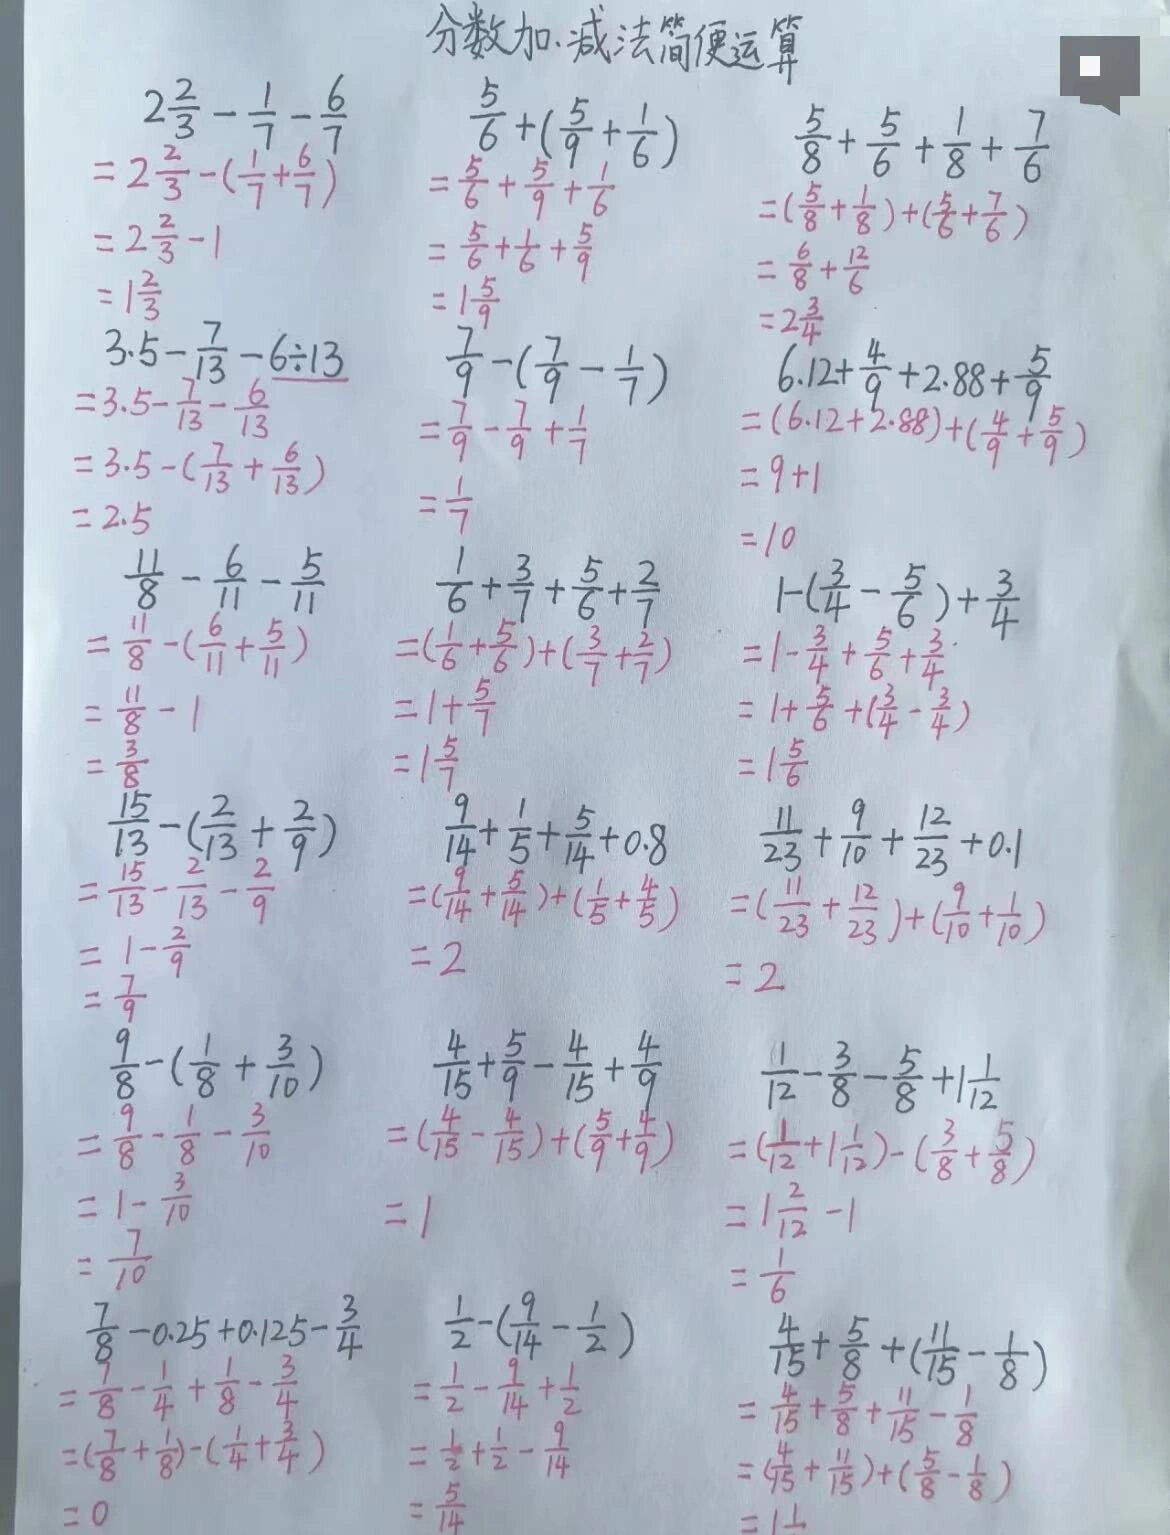 分数加、减法简便运算
2 2/3 - 1/7 - 6/7
= 2 2/3 - (1/7 + 6/7)
= 2 2/3 - 1
= 1 2/3
5/6 + (5/9 + 1/6)
= 5/6 + 5/9 + 1/6
= 5/6 + 1/6 + 5/9
= 1 5/9
5/8 + 5/6 + 1/8 + 7/6
= (5/8 + 1/8) + (5/6 + 7/6)
= 6/8 + 12/6
= 2 3/4
3.5 - 7/13 - 6÷13
= 3.5 - 7/13 - 6/13
= 3.5 - (7/13 + 6/13)
= 2.5
7/9 - (7/9 - 1/7)
= 7/9 - 7/9 + 1/7
= 1/7
6.12 + 4/9 + 2.88 + 5/9
= (6.12 + 2.88) + (4/9 + 5/9)
= 9 + 1
= 10
11/8 - 6/11 - 5/11
= 11/8 - (6/11 + 5/11)
= 11/8 - 1
= 3/8
1/6 + 3/7 + 5/6 + 2/7
= (1/6 + 5/6) + (3/7 + 2/7)
= 1 + 5/7
= 1 5/7
1 - (3/4 - 5/6) + 3/4
= 1 - 3/4 + 5/6 + 3/4
= 1 + 5/6 + (3/4 - 3/4)
= 1 5/6
15/13 - (2/13 + 2/9)
= 15/13 - 2/13 - 2/9
= 1 - 2/9
= 7/9
9/14 + 1/5 + 5/14 + 0.8
= (9/14 + 5/14) + (1/5 + 4/5)
= 2
11/23 + 9/10 + 12/23 + 0.1
= (11/23 + 12/23) + (9/10 + 1/10)
= 2
9/8 - (1/8 + 3/10)
= 9/8 - 1/8 - 3/10
= 1 - 3/10
= 7/10
4/15 + 5/9 - 4/15 + 4/9
= (4/15 - 4/15) + (5/9 + 4/9)
= 1
1/12 - 3/8 - 5/8 + 1 1/12
= (1/12 + 1 1/12) - (3/8 + 5/8)
= 1 2/12 - 1
= 1/6
7/8 - 0.25 + 0.125 - 3/4
= 7/8 - 1/4 + 1/8 - 3/4
= (7/8 + 1/8) - (1/4 + 3/4)
= 0
1/2 - (9/14 - 1/2)
= 1/2 - 9/14 + 1/2
= 1/2 + 1/2 - 9/14
= 5/14
4/15 + 5/8 + (11/15 - 1/8)
= 4/15 + 5/8 + 11/15 - 1/8
= (4/15 + 11/15) + (5/8 - 1/8)